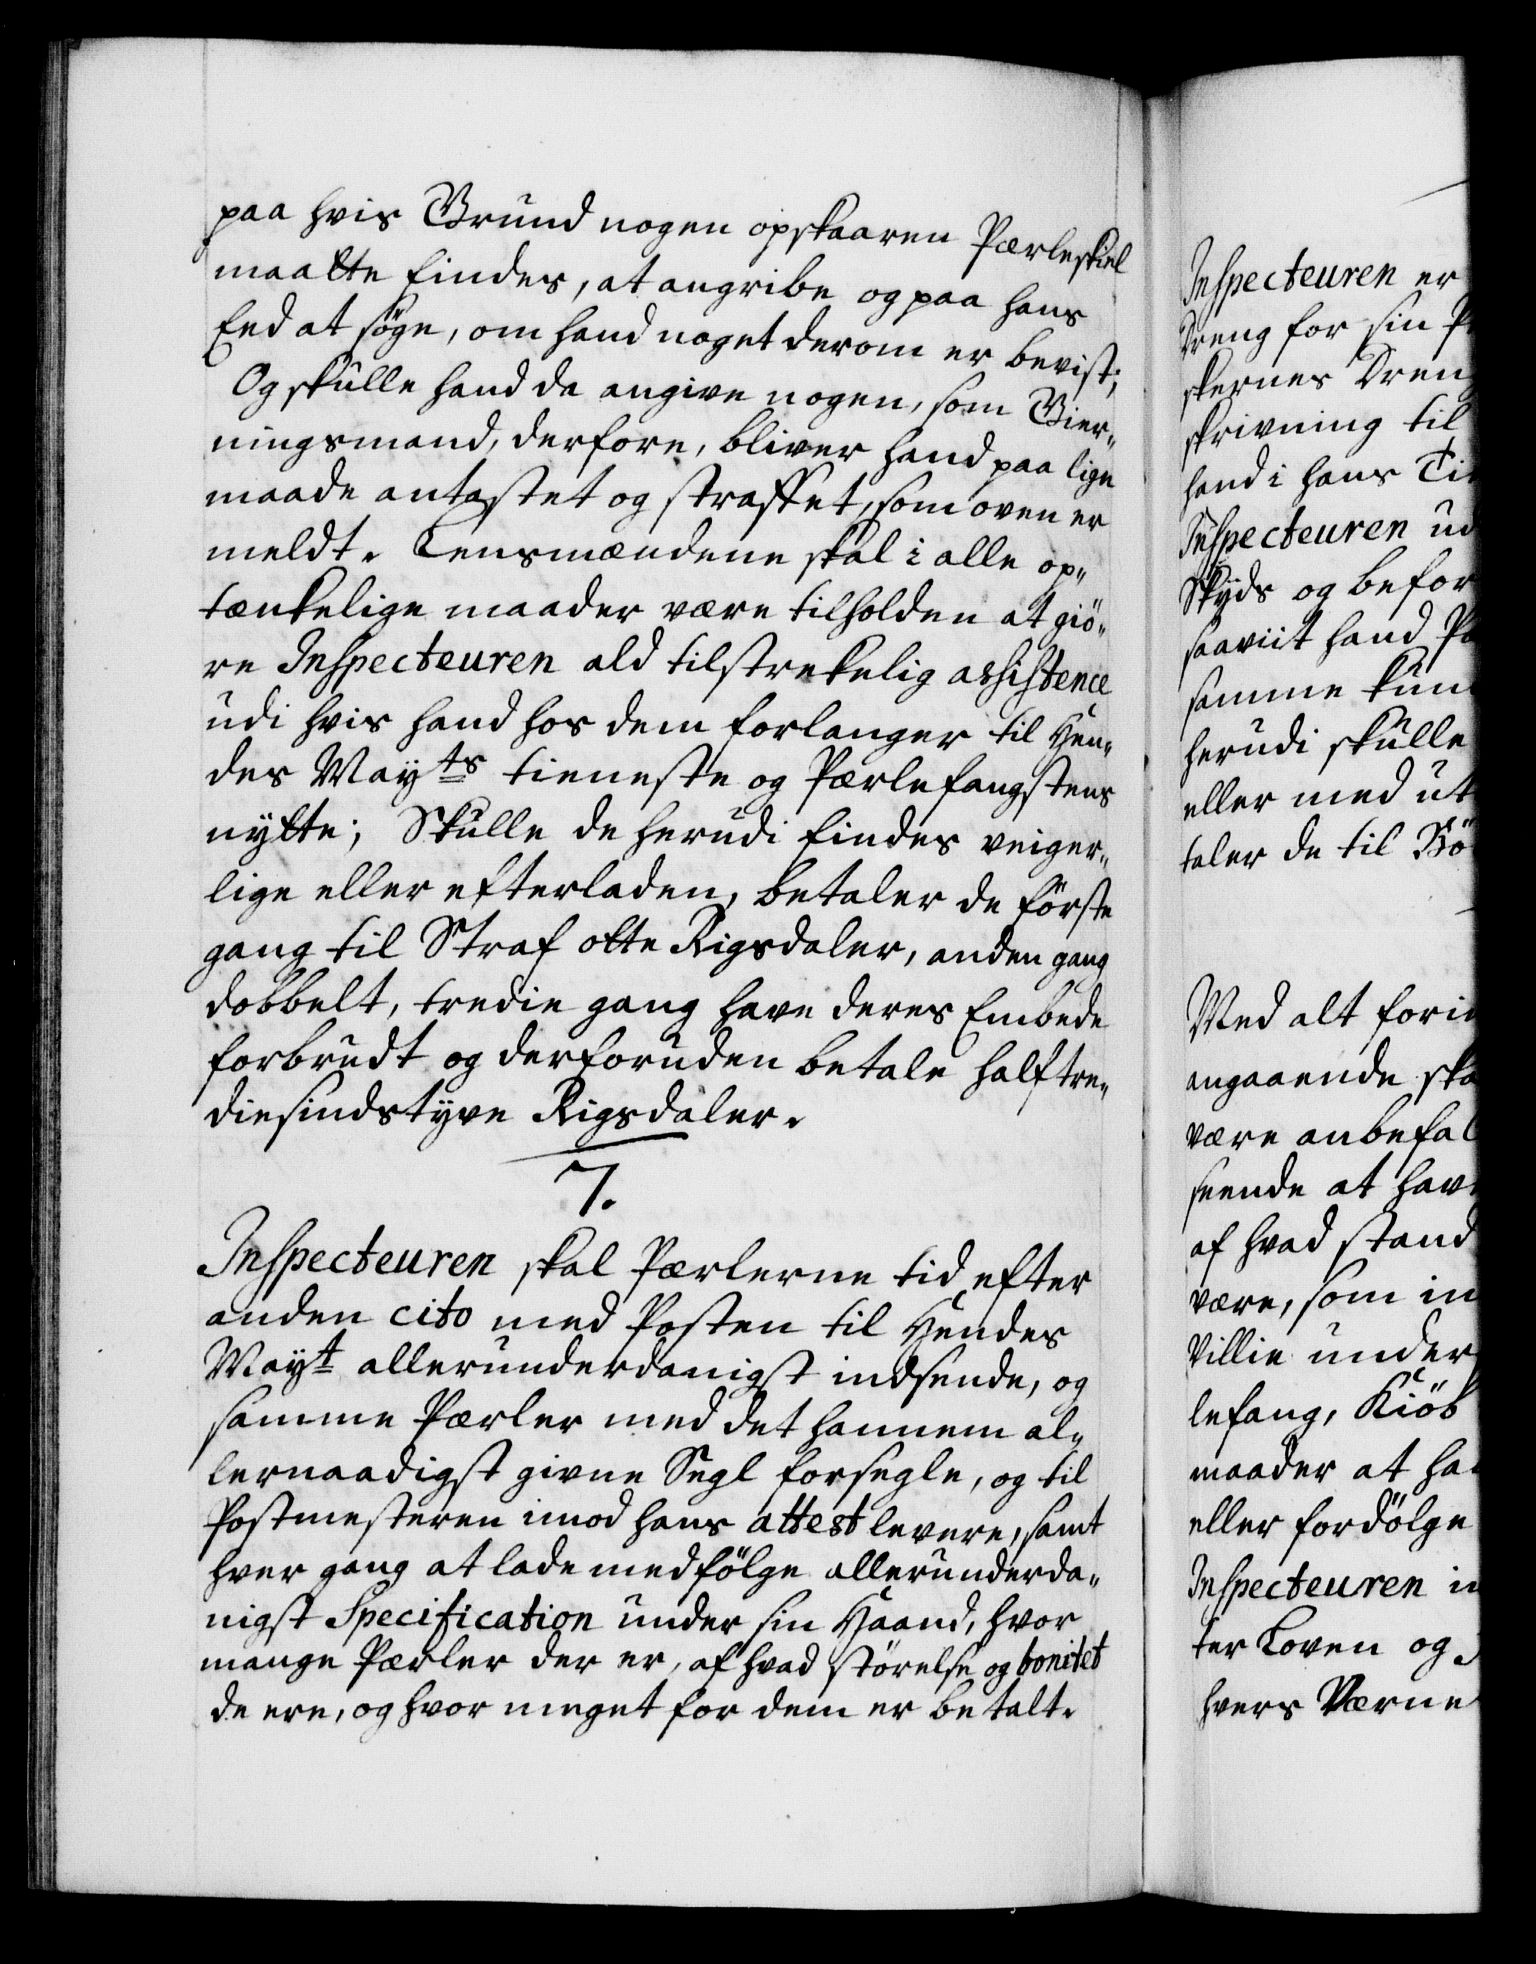 paa hvis Grund nogen opskaaren Pærleskiel
maatte findes, at angribe og paa hans
Eed at søge, om hand noget derom er bevist;
Og skulle hand da angive nogen, som Gier„
ningsmand, derfore, bliver hand paa lige
maade antastet og straffet, som oven er
meldt. Lensmændene skal i alle op„
tænkelige maader være tilholden at giö„
re Inspecteuren ald tilstrekelig assistence
udi hvis hand hos dem forlanger til Hen„
des Mayts tieneste og Pærlefangstens
nytte; Skulle de herudi findes veiger„
lige eller efterladen, betaler de förste
gang til Straf otte Rigsdaler, anden gang
dobbelt, tredie gang have deres Embede
forbrudt og derforuden betale halftre„
diesindstyve Rigsdaler.
7.
Inspecteuren skal Pærlerne tid efter
anden cito med Posten til Hendes
Mayt allerunderdanigst indsende, og
samme Pærler med det hannem al„
lernaadigst givne Segl forsegle, og til
Postmesteren imod hans attest levere, samt
hver gang at lade medfölge allerunderda„
nigst Specification under sin Haand, hvor
mange Pærler der er, af hvad störelse og bonitet
de ere, og hvor meget for dem er betalt.
Inspecteuren er
Dreng for sin
skernes Dreng
skrivning til
hand i hans
Inspecteuren ud
Skyds og befor
saaviit hand
samme kun
herudi skulle
eller med ut
taler de til Bö
Med alt fori
angaaende ska
være anbefal
seende at hav
af hvad stand
være, som in
Villie under
lefang, Kiöb
maader at ha
eller fordölge
Inspecteuren in
ter Loven og
hvers Værne